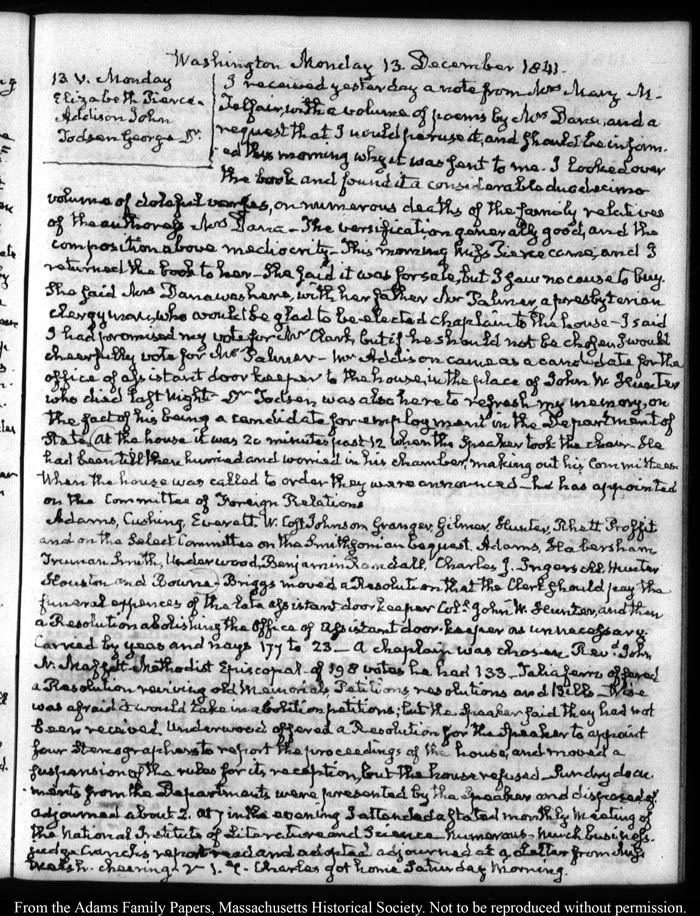 Washington Monday 13. December 1841.
13. V. Monday
Elizabeth Pierce.
Addison John
Todsen George Dr.
I received yesterday a note from Mrs Mary M.
Telfair, with a volume of poems by Mrs Dana, and a
request that I would peruse it, and should be inform-
ed this morning why it was sent to me. I looked over
the book and found it a considerable duodecimo
volume of doleful verses, on numerous deaths of the family relatives
of the authoress Mrs Dana – The versification generally good, and the
composition above mediocrity – This morning Miss Pierce came, and I
returned the book to her – She said it was for sale, but I saw no cause to buy.
She said Mrs Dana was here, with her father Mr Palmer, a presbyterian
clergyman, who would be glad to be elected chaplain to the house – I said
I had promised my vote for Mr Clark, but if he should not be chosen I would
cheerfully vote for Mr Palmer – Mr Addison came as a candidate for the
office of assistant door keeper to the house, in the place of John W. Hunter
who died last Night – Dr Todsen was also here to refresh my memory, on
the fact of his being a candidate for employment in the Department of
State. At the house it was 20 minutes past 12 when the Speaker took the chair – He
had been till then hurried and worried in his chamber, making out his Committees
When the house was called to order they were announced – he has appointed
on the Committee of Foreign Relations
Adams, Cushing, Everett, W. Cost Johnson Granger, Gilmer, Hunter, Rhett Proffit
and on the Select Committee on the Smithsonian bequest. Adams, Habersham
Truman Smith, Underwood, Benjamin Randall, Charles J. Ingersoll, Hunter
Houston and Bowne – Briggs moved a Resolution that the Clerk should pay the
funeral expences of the late assistant door keeper Coll. John W. Hunter, and then
a Resolution abolishing the Office of assistant door-keeper as unnecessary.
Carried by yeas and nays 177 to 23 – A chaplain was chosen Revd. John
N. Maffitt Methodist Episcopal – of 198 votes he had 133 – Taliaferro offered
a Resolution reviving old Memorials, Petitions resolutions and Bills – Wise
was afraid it would take in abolition petitions; but the Speaker said they had not
been received. Underwood offered a Resolution for the Speaker to appoint
four Stenographers to report the proceedings of the house, and moved a
suspension of the rules for its reception, but the house refused – Sundry docu-
ments from the Departments were presented by the Speaker and disposed of
adjourned about 2. At 7 in the evening I attended a stated monthly Meeting of
the National Institute of Literature and Science – Numerous – Much business.
judge Cranch's report read and adopted adjourned at 9 a letter from
Welsh. cheering – Charles got home Saturday Morning.
From the Adams Family Papers, Massachusetts Historical Society. Not to be reproduced without permission.